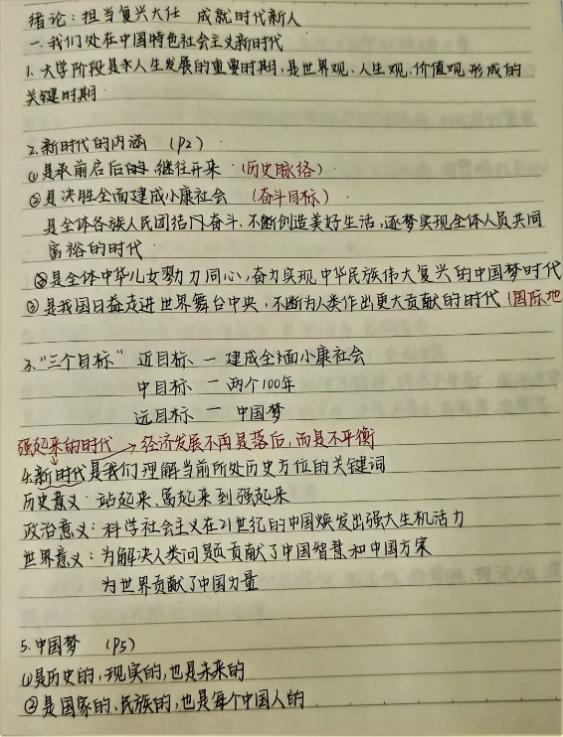 绪论：担当复兴大任 成就时代新人
一、我们处在中国特色社会主义新时代
1. 大学阶段是人生发展的重要时期，是世界观、人生观、价值观形成的
关键时期
2. 新时代的内涵 （P2）
①是承前启后的、继往开来 （历史脉络）
②是决胜全面建成小康社会 （奋斗目标）
是全体各族人民团结奋斗、不断创造美好生活，逐梦实现全体人员共同
富裕的时代
③是全体中华儿女勠力同心，奋力实现中华民族伟大复兴的中国梦时代
是我国日益走进世界舞台中央，不断为人类作出更大贡献的时代（国际地
3. "三个目标" 近目标 — 建成全面小康社会
中目标 — 两个100年
远目标 — 中国梦
强起来的时代 → 经济发展不再是落后，而是不平衡
4. 新时代是我们理解当前所处历史方位的关键词
历史意义：站起来、富起来到强起来
政治意义：科学社会主义在21世纪的中国焕发出强大生机活力
世界意义：为解决人类问题贡献了中国智慧和中国方案
为世界贡献了中国力量
5. 中国梦 （P5）
①是历史的，现实的，也是未来的
②是国家的、民族的，也是每个中国人的